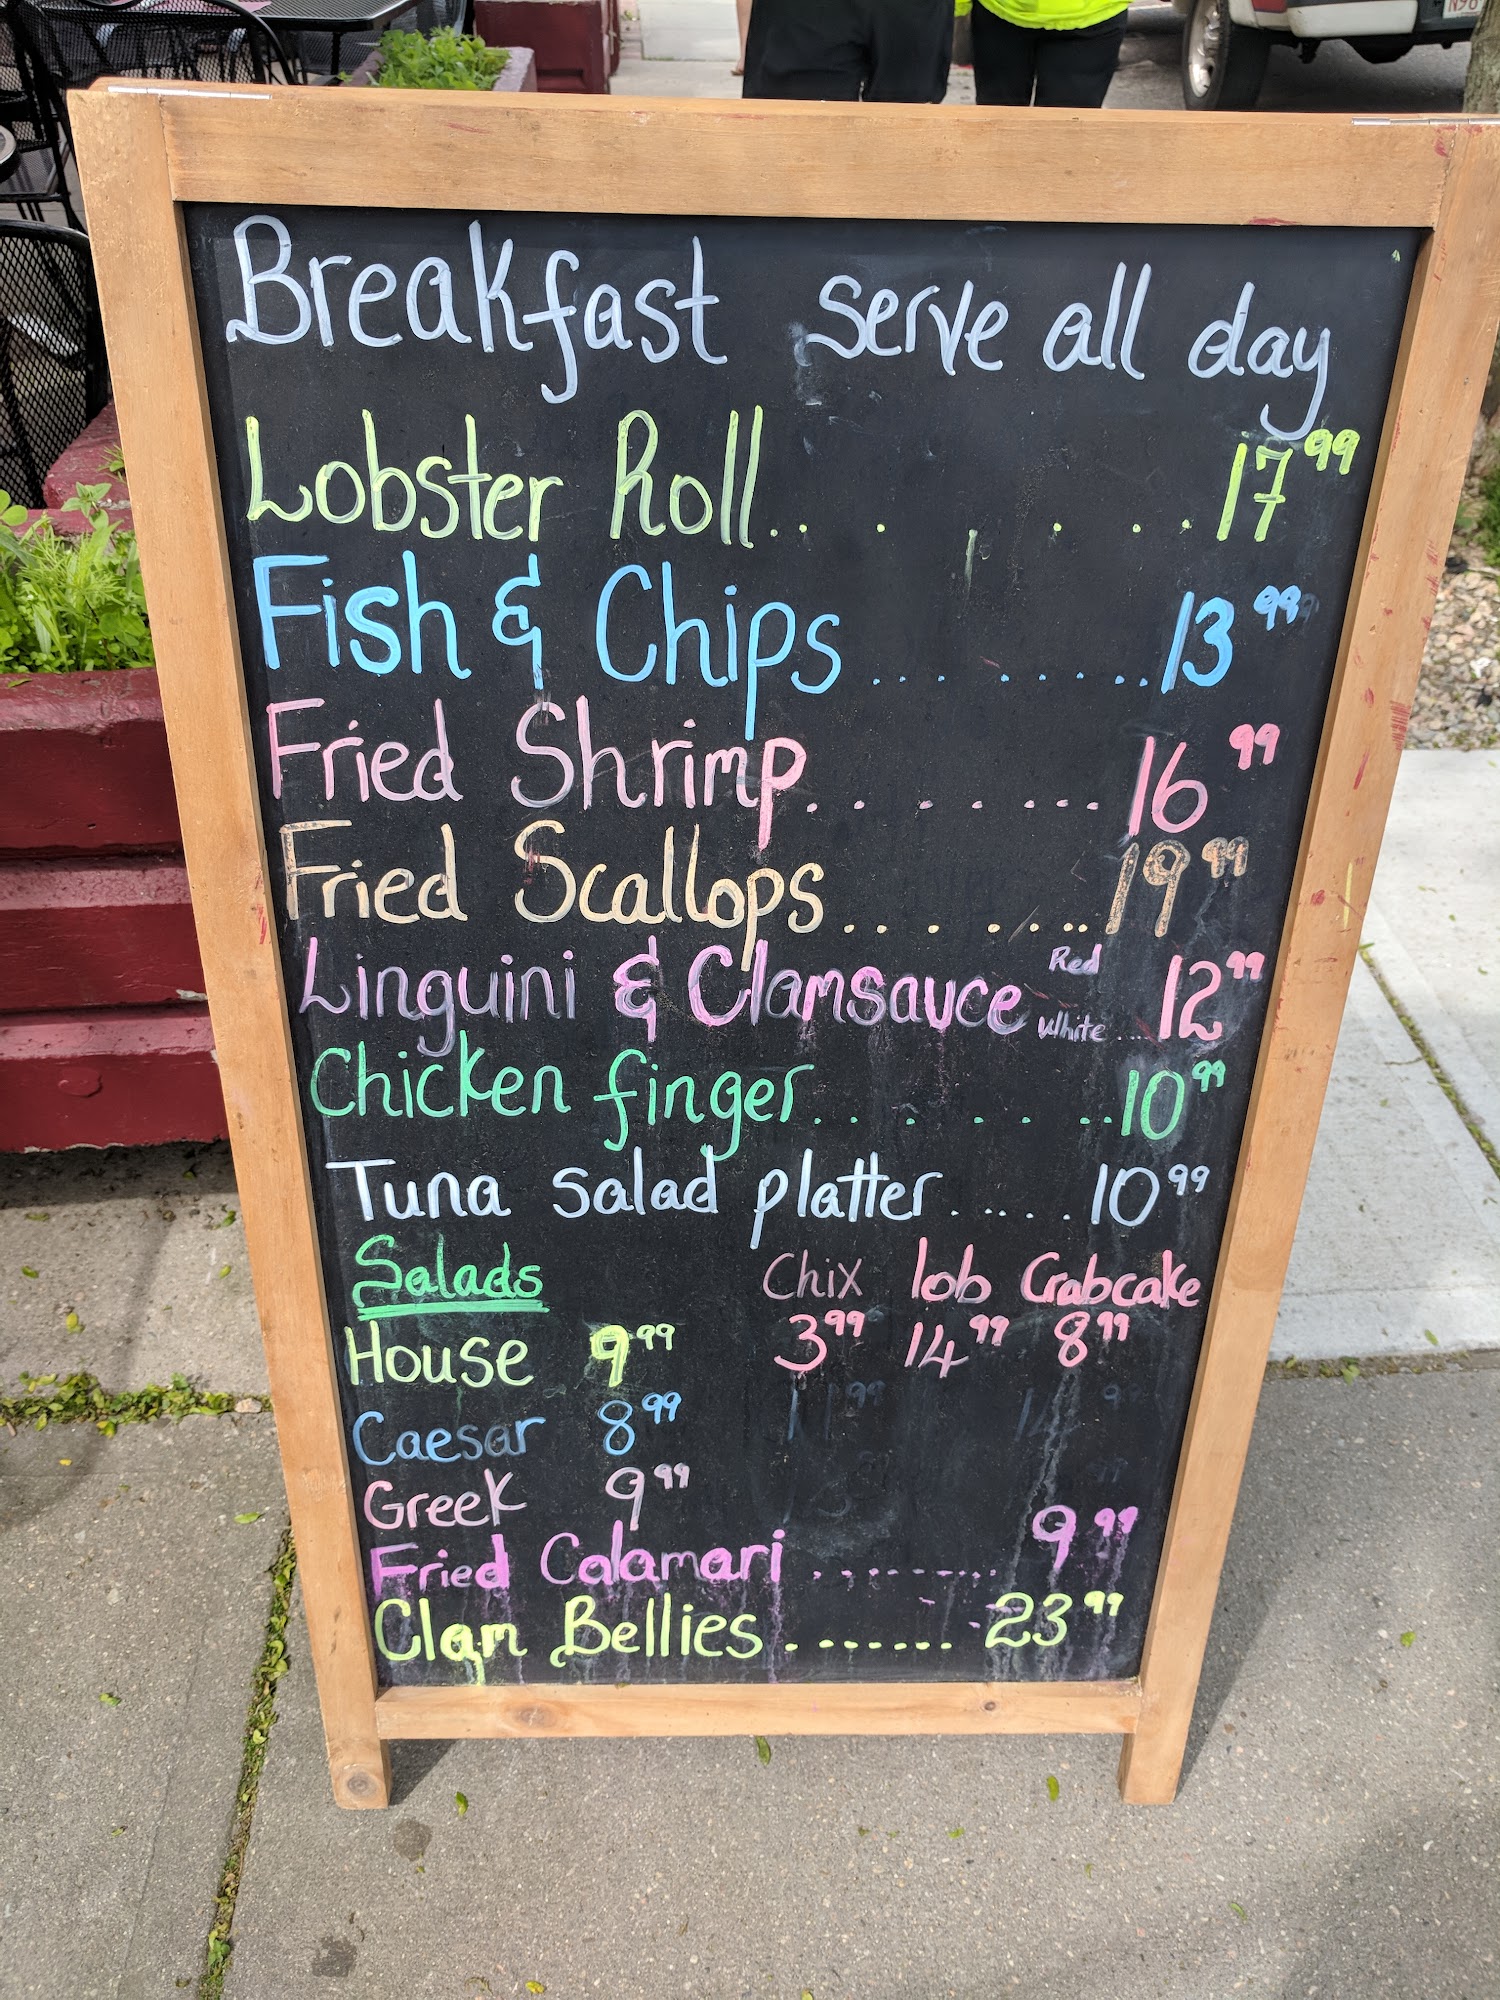 Breakfast serve all day
Lobster Roll.. . . . . . 17 99
Fish & Chips ... . ..... 13 99
Fried Shrimp. . . . . ... 16 99
Fried Scallops .. . . ... 19 99
Linguini & Clamsauce Red White ... 12 99
Chicken finger. . . . . .. 10 99
Tuna salad platter . .. . . 10 99
Salads Chix lob Crabcake
House 9 99 3 99 14 99 8 99
Caesar 8 99
Greek 9 99
Fried Calamari ......... 9 99
Clam Bellies ....... 23 99